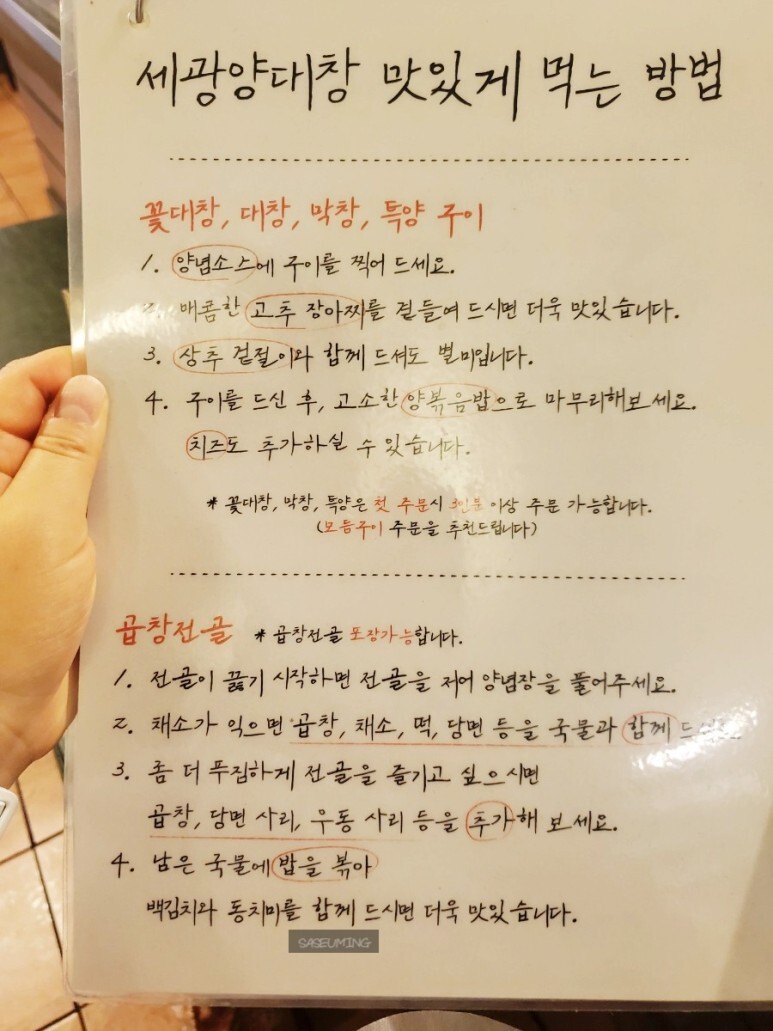 세광양대창 맛있게 먹는 방법
꽃대창, 대창, 막창, 특양 구이
1. 양념소스에 구이를 찍어 드세요.
2. 매콤한 고추 장아찌를 곁들여 드시면 더욱 맛있습니다.
3. 상추 겉절이와 함께 드셔도 별미입니다.
4. 구이를 드신 후, 고소한 양볶음밥으로 마무리해보세요.
치즈도 추가하실 수 있습니다.
* 꽃대창, 막창, 특양은 첫 주문시 3인분 이상 주문 가능합니다.
(모듬구이 주문을 추천드립니다)
곱창전골 * 곱창전골 포장가능합니다.
1. 전골이 끓기 시작하면 전골을 저어 양념장을 풀어주세요.
2. 채소가 익으면 곱창, 채소, 떡, 당면 등을 국물과 함께
3. 좀 더 푸짐하게 전골을 즐기고 싶으시면
곱창, 당면 사리, 우동 사리 등을 추가해 보세요.
4. 남은 국물에 밥을 볶아
백김치와 동치미를 함께 드시면 더욱 맛있습니다.
SASEUMING